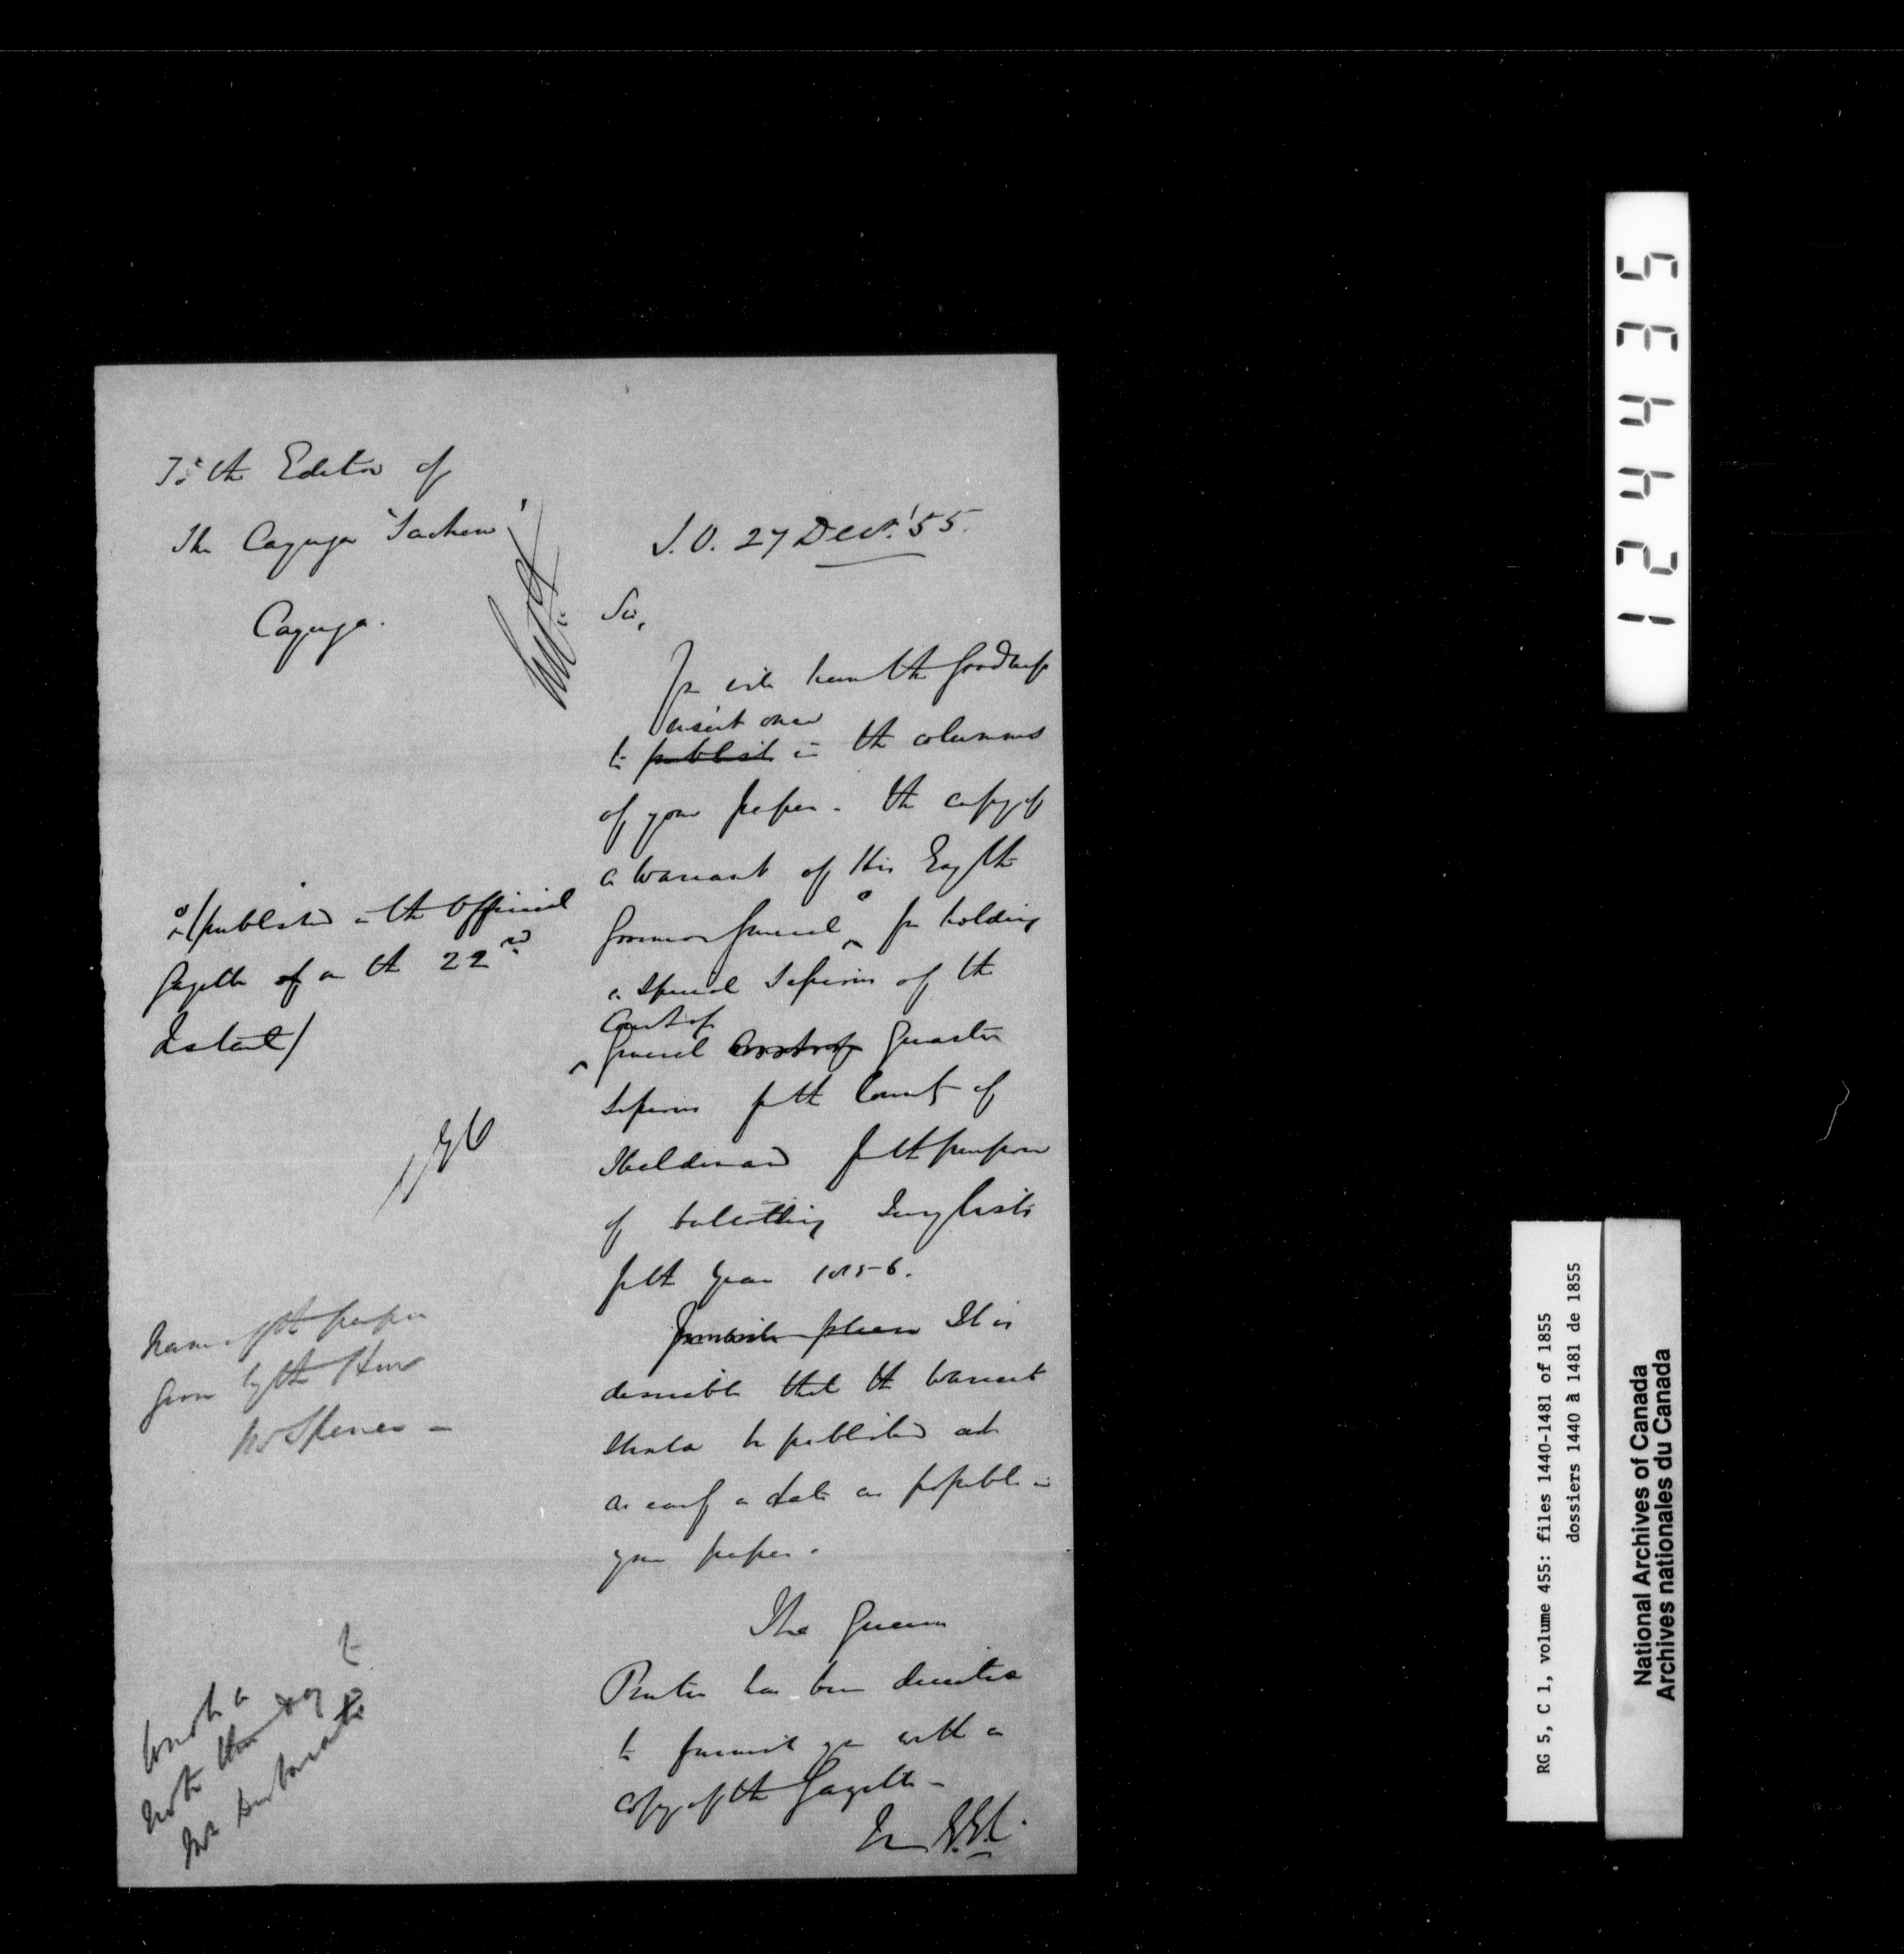 To the Editor of
The Cayuga "Sachem"
Cayuga.
S.O. 27 Decr. '55.
Sir,
You will have the goodness
insert once
to publish in the columns
of your paper. the copy of
a Warrant of His Exy the
Governor General for holding
a Special Sessions of the
Court of
General Court of Quarter
Sessions for the County of
Haldimand for the purpose
of balloting Jury lists
for the year 1855-6.
please It is
desirable that the Warrant
should be published at
as early a date as possible in
your paper.
The Queen's
Printer has been directed
to furnish you with a
copy of the Gazette -
(published in the Official
Gazette of on the 22nd
Instant)
Name of the paper
given by the Hon
Mr Spence -
note this day to
Mr
124435
RG 5, C 1, volume 455: files 1440-1481 of 1855
dossiers 1440 à 1481 de 1855
National Archives of Canada
Archives nationales du Canada